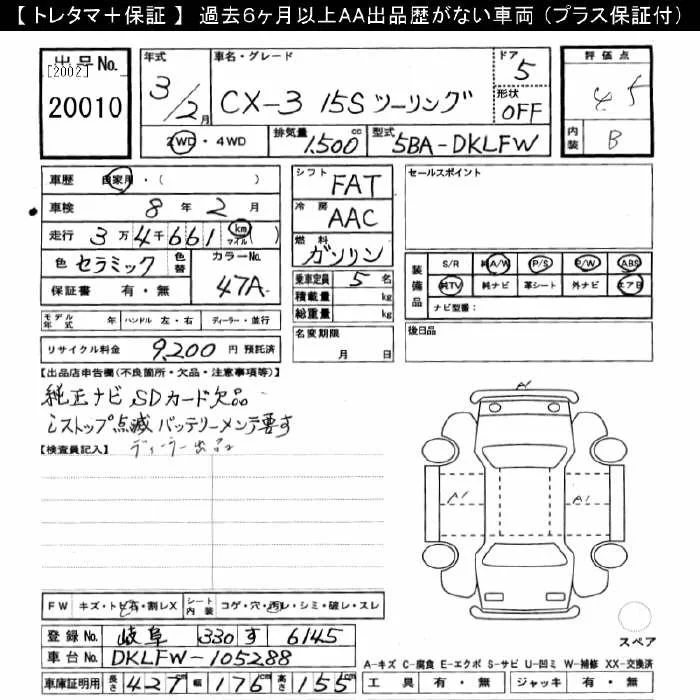 【 トレタマ＋保証 】 過去6ヶ月以上AA出品歴がない車両（プラス保証付）
出品No. [2002] 20010
年式 3/2月
車名・グレード CX-3 15S ツーリング
ドア 5
形状 OFF
評価点 4.5
内装 B
2WD・4WD
排気量 1,500 cc
型式 5BA-DKLFW
車歴 自家用・( )
車検 8年 2月
走行 3万4千661 km マイル ( )
色 セラミック 色替
カラーNo. 47A
保証書 有・無
シフト FAT
冷房 AAC
燃料 ガソリン
乗車定員 5名
積載量 kg
総重量 kg
セールスポイント
装備品 S/R 純A/W P/S P/W ABS
純TV 純ナビ 革シート 外ナビ エアB
ナビ型番：
モデル年式 年 ハンドル 左・右 ディーラー・並行
名変期限 月 日
後日品
リサイクル料金 9,200 円 預託済
【出品店申告欄(不良箇所・欠品・注意事項等)】
純正ナビ SDカード欠品
iストップ点滅 バッテリーメンテ要す
【検査員記入】 ディーラー出品
A1
A1
A1
FW キズ・トビ石・割レX
シート内装 コゲ・穴・汚レ・シミ・破レ・スレ
登録No. 岐阜 330 す 6145
車台No. DKLFW-105288
車庫証明用 長さ 427 幅 176 高さ 155
スペア
A-キズ C-腐食 E-エクボ S-サビ U-凹ミ W-補修 XX-交換済
工具 有・無 ジャッキ 有・無